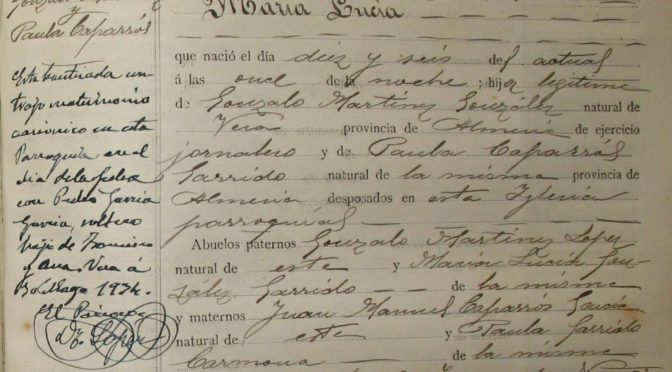 Gonzalo
y
Paula Caparrós
Esta bautizada con-
trajo matrimonio
canónico en esta
Parroquia en el
día de la fecha
con Pedro García
García, soltero
hijo de Francisco
y Ana. Vera á
1924.
El Párroco
López
María Lucía
que nació el día diez y seis del actual
á las once de la noche; hija legítima
de Gonzalo Martínez González natural de
Vera provincia de Almería de ejercicio
jornalero y de Paula Caparrós
Garrido natural de la misma provincia de
Almería desposados en esta Iglesia
parroquial
Abuelos paternos Gonzalo Martínez López
natural de este y María Lucía Gon-
zález Garrido de la misma
y maternos Juan Manuel Caparrós García
natural de este y Paula Garrido
Carmona de la misma